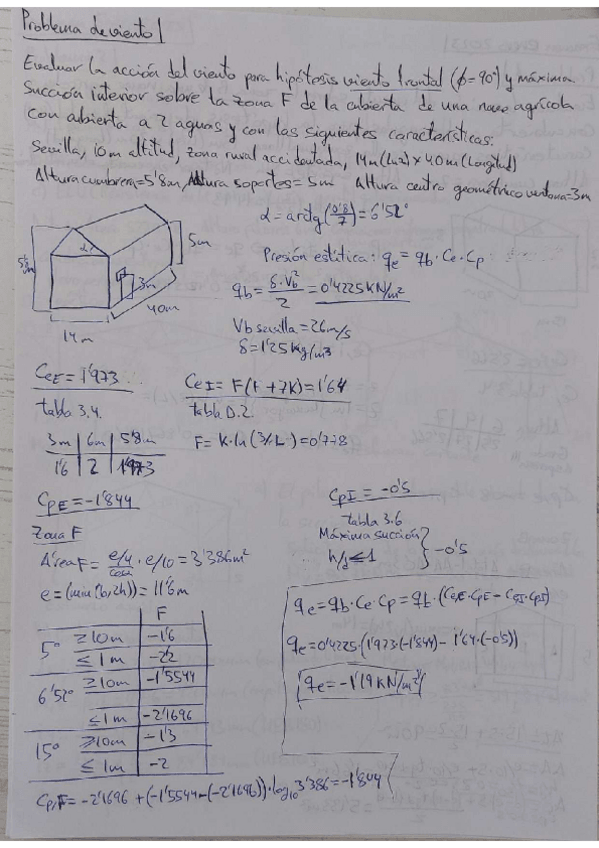 Problema de viento 1
Evaluar la acción del viento para hipótesis viento frontal (ϕ=90°) y máxima
succión interior sobre la zona F de la cubierta de una nave agrícola
con cubierta a 2 aguas y con las siguientes características:
Sevilla, 10m altitud, zona rural accidentada, 14m (Luz) x 40m (Longitud)
Altura cumbrera=5'8m, Altura soportes=5m Altura centro geométrico ventana=3m
α=arctg(0'8/7)=6'52°
5'8m
α
5m
3m
40m
14m
Presión estática: qe=qb·Ce·Cp
qb=δ·Vb²/2=0'4225KN/m²
Vb sevilla=26m/s
δ=1'25Kg/m3
CeE=1'973
tabla 3.4.
3m | 6m | 5'8m
1'6 | 2 | 1'973
CeI=F(F+7K)=1'64
tabla D.2.
F=K·ln(3/L)=0'778
CpE=-1'844
Zona F
Área F=e/4/cosα·e/10=3'386m²
e=(min(b,2h))=11'6m
F
5° ≥10m -1'6
≤1m -2'2
6'52° ≥10m -1'5544
≤1m -2'1696
15° ≥10m -1'3
≤1m -2
Cp,F=-2'1696+(-1'5544-(-2'1696))·log10 3'386=-1'844
CpI=-0'5
tabla 3.6
Máxima succión
h/d≤1 } -0'5
qe=qb·Ce·Cp=qb·(CeE·CpE-CeI·CpI)
qe=0'4225·(1'973·(-1'844)-1'64·(-0'5))
qe=-1'19KN/m²